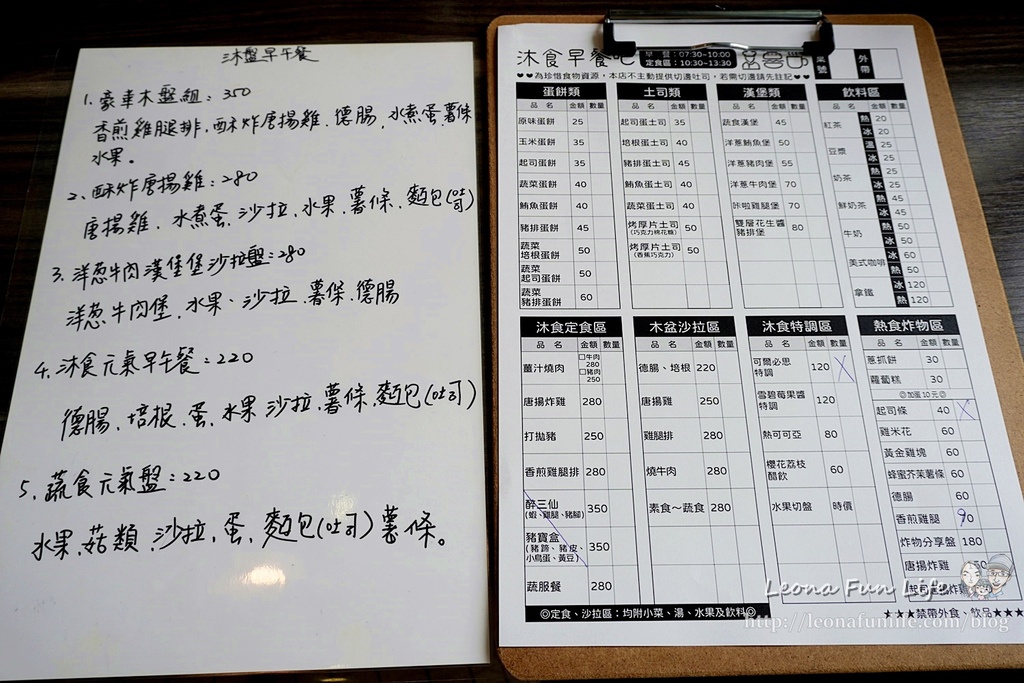 沐盤早午餐
1. 豪車木盤組：350
香煎雞腿排，酥炸唐揚雞、德腸，水煮蛋、薯條
水果。
2、酥炸唐揚雞：280
唐揚雞、水煮蛋、沙拉、水果、薯條、麵包(吐司)
3. 洋葱牛肉漢堡堡沙拉盤：280
洋葱牛肉堡、水果、沙拉、薯條、德腸
4. 沐食元氣早午餐：220
德腸、培根、蛋、水果、沙拉、薯條、麵包(吐司)
5、蔬食元氣盤：220
水果、菇類、沙拉、蛋、麵包(吐司)薯條。
沐食早餐吧
早 餐：07:30~10:00
定食區：10:30~13:30
桌號
外帶
♥♥為珍惜食物資源，本店不主動提供切邊吐司，若需切邊請先註記♥♥
蛋餅類
品 名 金額 數量
原味蛋餅 25
玉米蛋餅 35
起司蛋餅 35
蔬菜蛋餅 40
鮪魚蛋餅 40
豬排蛋餅 45
蔬菜培根蛋餅 50
蔬菜起司蛋餅 50
蔬菜豬排蛋餅 60
土司類
品 名 金額 數量
起司蛋土司 35
培根蛋土司 40
豬排蛋土司 45
鮪魚蛋土司 40
蔬菜蛋土司 40
烤厚片土司 50
(巧克力棉花糖)
烤厚片土司 50
(香蕉巧克力)
漢堡類
品 名 金額 數量
蔬食漢堡 45
洋蔥鮪魚堡 50
洋蔥豬肉堡 55
洋蔥牛肉堡 70
咔啦雞腿堡 70
雙層花生醬豬排堡 80
飲料區
品 名 金額 數量
紅茶 熱 20
冰 20
豆漿 溫 25
冰 25
奶茶 熱 25
冰 25
鮮奶茶 熱 45
冰 45
牛奶 熱 50
冰 60
美式咖啡 熱 50
冰 50
拿鐵 冰 120
熱 120
沐食定食區
品 名 金額 數量
薑汁燒肉 □牛肉 280
□豬肉 250
唐揚炸雞 280
打拋豬 250
香煎雞腿排 280
醉三仙 350
(蝦、雞腿、豬腳)
豬寶盒 350
(豬蹄、豬皮、小鳥蛋、黃豆)
蔬服餐 280
木盆沙拉區
品 名 金額 數量
德腸、培根 220
唐揚雞 250
雞腿排 280
燒牛肉 280
素食～蔬食 280
沐食特調區
品 名 金額 數量
可爾必思特調 120
雪碧莓果醬特調 120
熱可可亞 80
櫻花荔枝醋飲 60
水果切盤 時價
熱食炸物區
品 名 金額 數量
蔥抓餅 30
蘿蔔糕 30
◎加蛋10元◎
起司條 40
雞米花 60
黃金雞塊 60
蜂蜜芥茉薯條 60
德腸 60
香煎雞腿 90
炸物分享盤 180
唐揚炸雞
◎定食、沙拉區：均附小菜、湯、水果及飲料◎
★★★禁帶外食、飲品★★★
Leona Fun Life
http://leonafunlife.com/blog